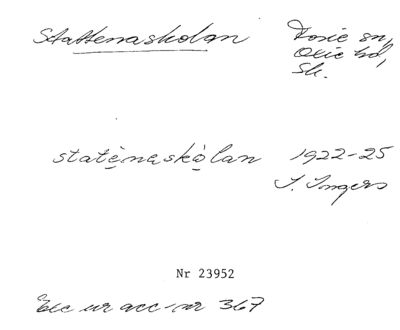 Stattenaskolan
Fosie sn,
Oxie hd,
Sk.
statènaskòlan
1922-25
I. Ingers
Nr 23952
Exc ur acc-nr 367